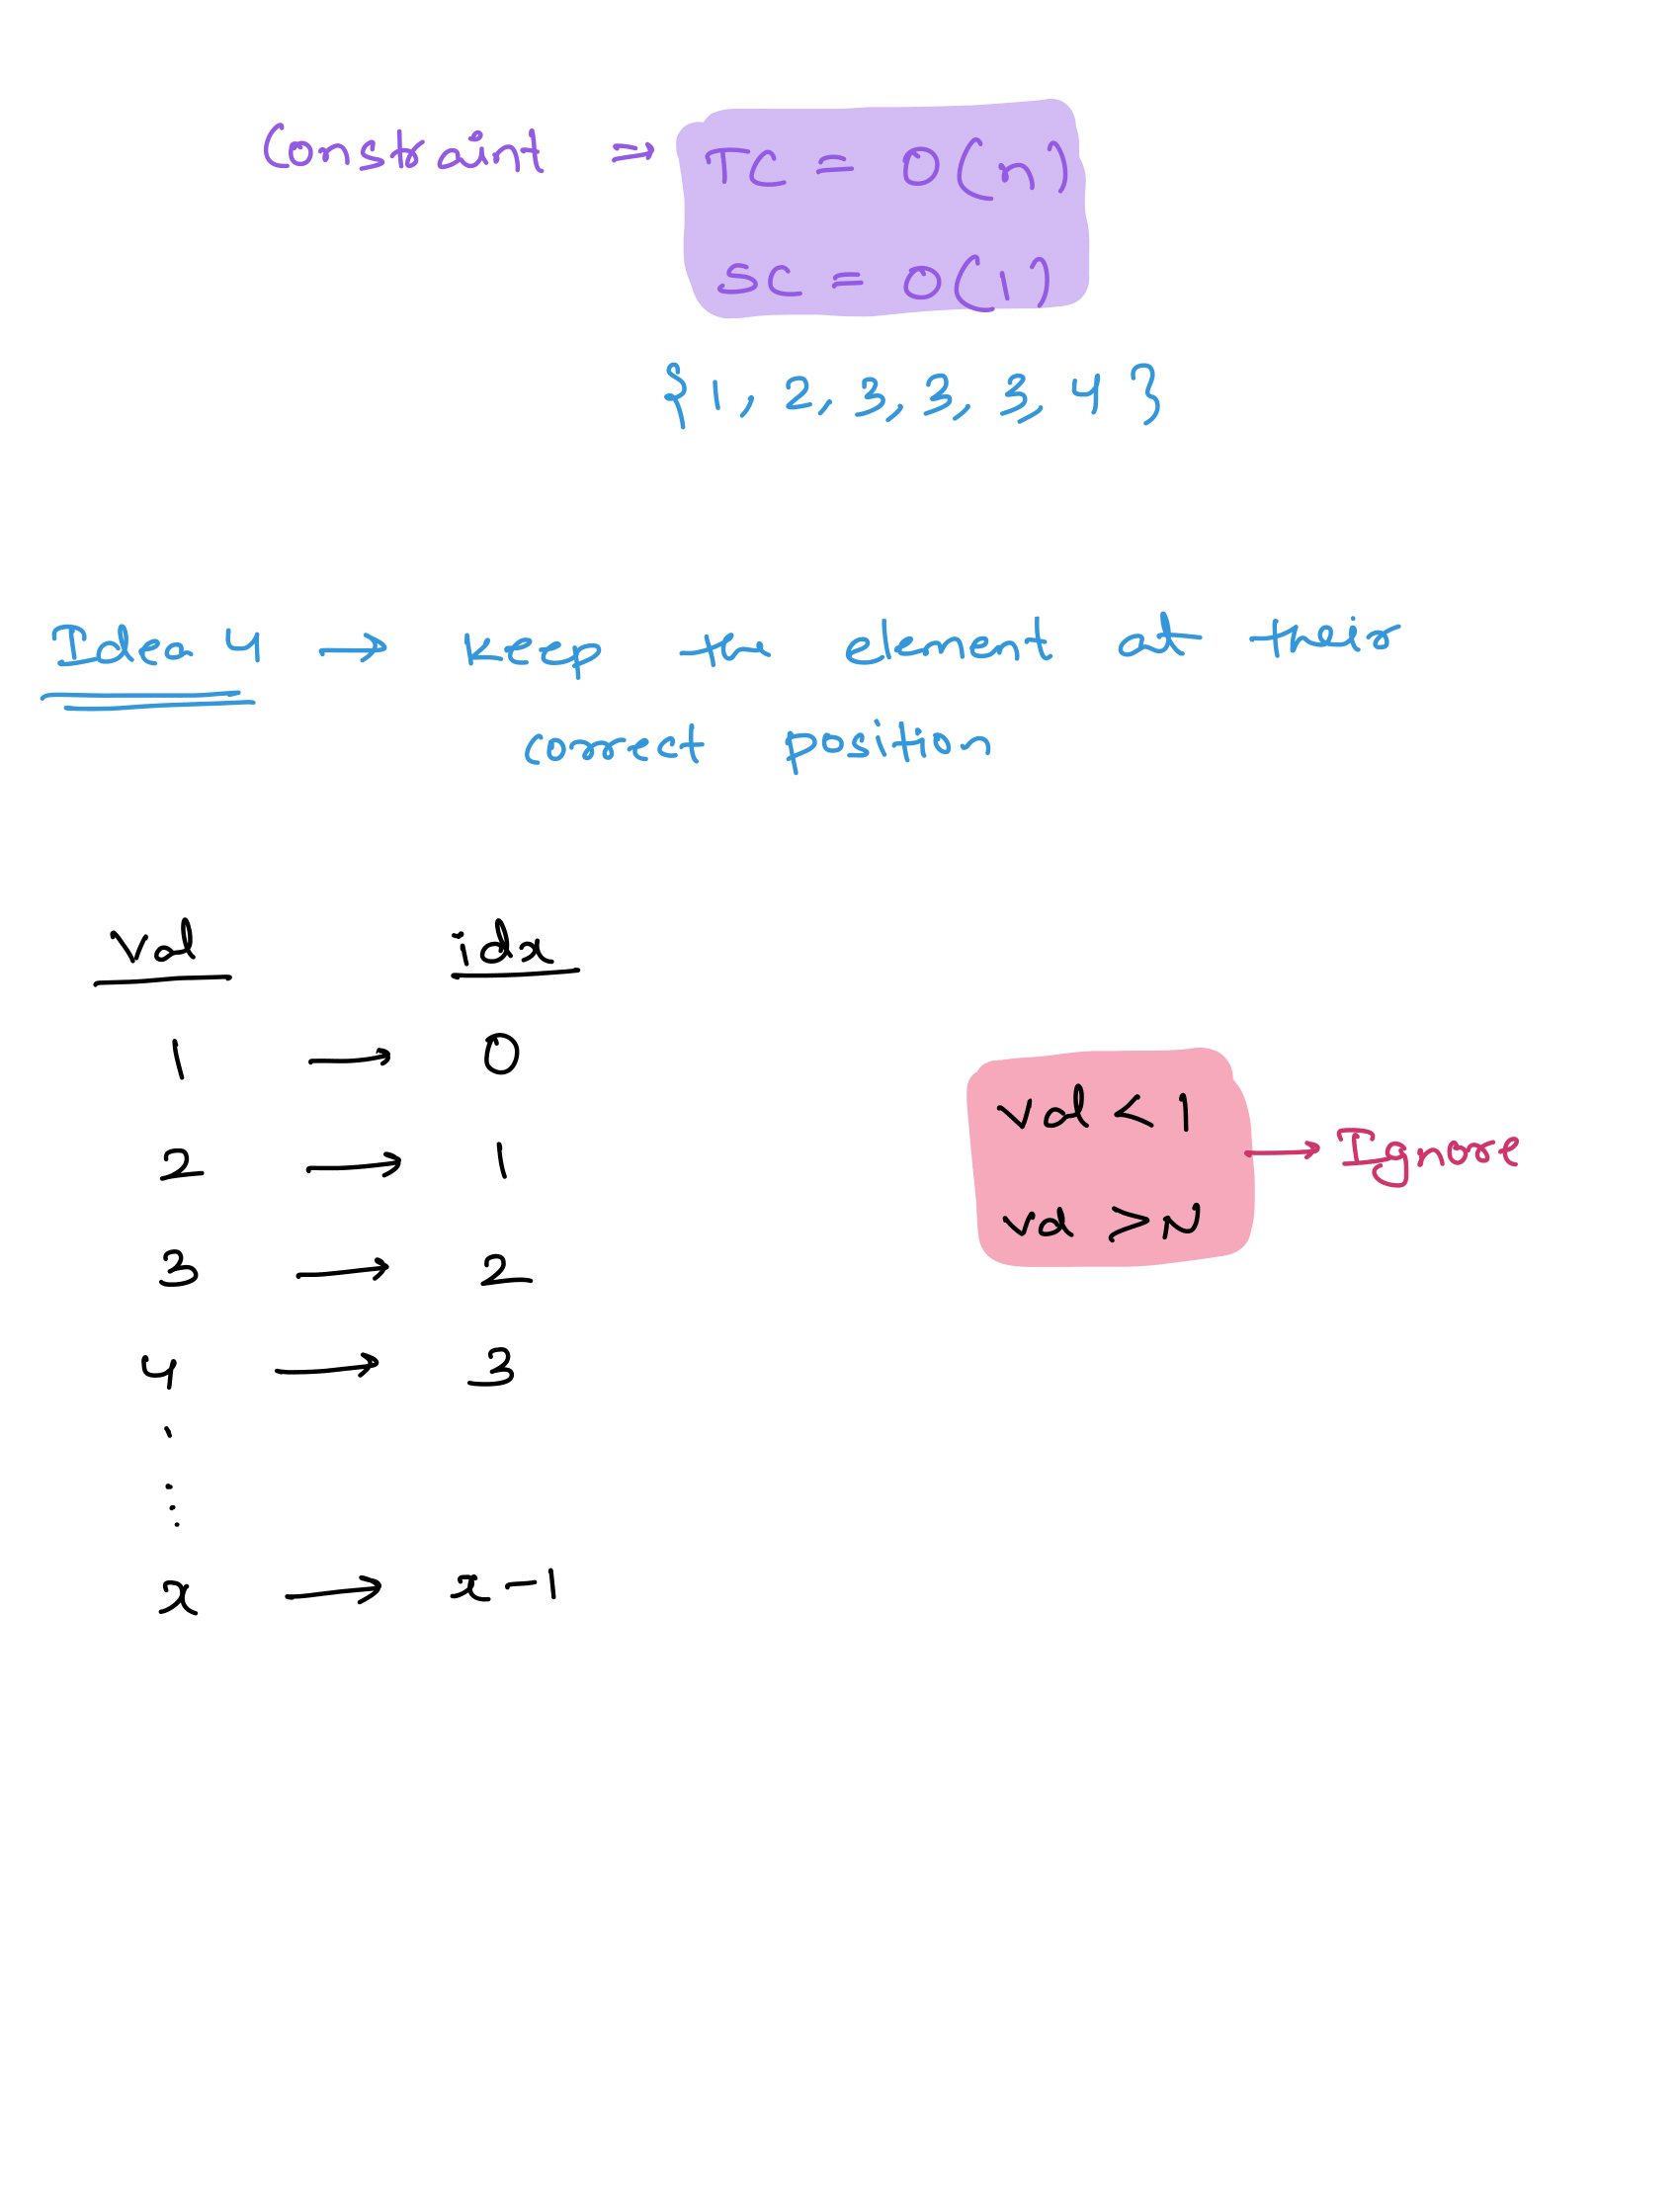 Constraint ⇒ TC = O(n)
SC = O(1)
{ 1, 2, 3, 3, 3, 4 }
Idea 4 → Keep the element at their
correct position
Val idx
1 → 0
2 → 1
3 → 2
4 → 3
x → x-1
val < 1
val > N
→ Ignore